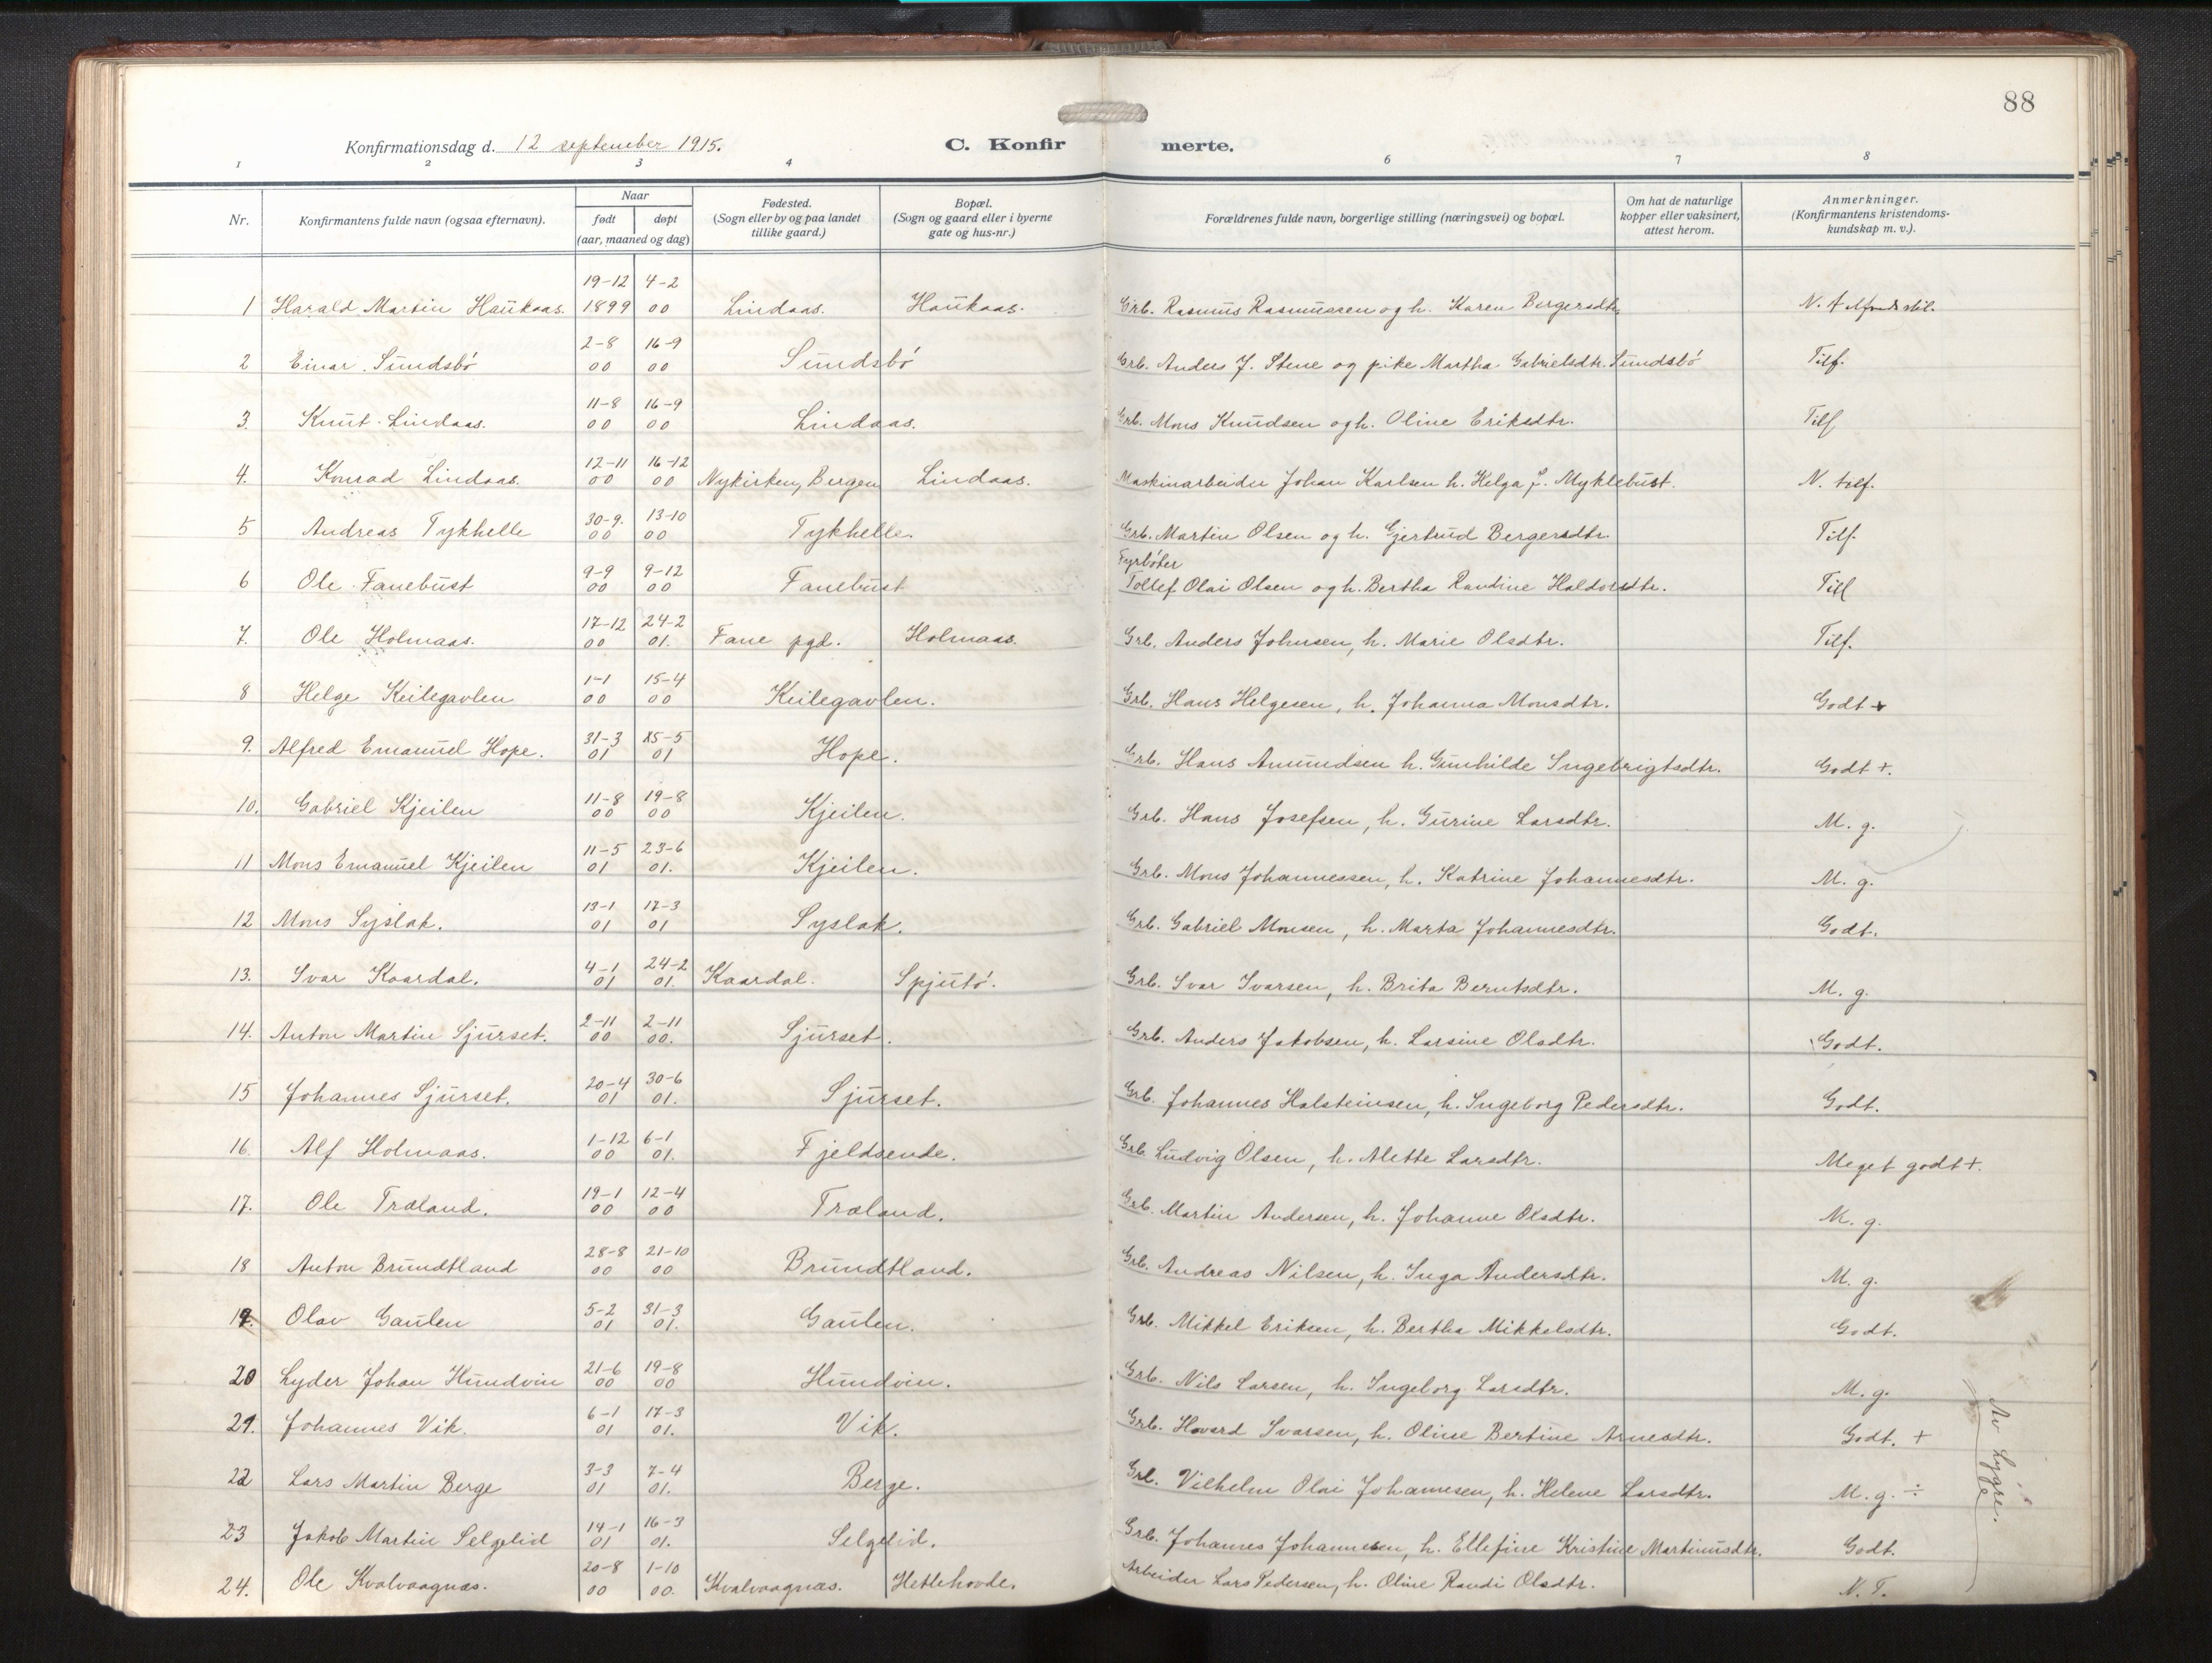 88
Konfirmationsdag d. 12 september 1915.
C. Konfirmerte.
1 2 3 4 6 7 8
Nr. Konfirmantens fulde navn (ogsaa efternavn). Naar født døpt (aar, maaned og dag) Fødested. (Sogn eller by og paa landet tillike gaard.) Bopæl. (Sogn og gaard eller i byerne gate og hus-nr.) Forældrenes fulde navn, borgerlige stilling (næringsvei) og bopæl. Om hat de naturlige kopper eller vaksinert, attest herom. Anmerkninger. (Konfirmantens kristendoms-kundskap m. v.).
1 Harald Martin Haukaas. 19-12 1899 4-2 00 Lindaas. Haukaas. Grb. Rasmus Rasmussen og h. Karen Bergersdtr. N.
2 Einar Sundsbó 2-8 00 16-9 00 Sundsbó Grb. Anders J. Stene og pike Martha Gabrielsdtr. Sundsbó Tilf.
3. Knut Lindaas. 11-8 00 16-9 00 Lindaas. Grb. Mons Knudsen og h. Oline Eriksdtr. Tilf
4. Konrad Lindaas. 12-11 00 16-12 00 Nykirken, Bergen Lindaas. Maskinarbeider Johan Karlsen h. Helga f. Myklebust. N. tilf.
5 Andreas Tykhelle 30-9. 00 13-10 00 Tykhelle. Grb. Martin Olsen og h. Gjertrud Bergersdtr. Tilf.
6 Ole Fanebust 9-9 00 9-12 00 Fanebust Fyrbóter Tollef Olai Olsen og h. Bertha Randine Haldorsdtr. Tilf
7. Ole Holmaas. 17-12 00 24-2 01. Fane pgd. Holmaas. Grb. Anders Johnsen, h. Marie Olsdtr. Tilf.
8 Helge Keilegavlen 1-1 00 15-4 00 Keilegavlen. Grb. Hans Helgesen, h. Johanna Monsdtr. Godt +
9. Alfred Emanuel Hope. 31-3 01 15-5 01 Hope. Grb. Hans Amundsen h. Gunhilde Ingebrigtsdtr. Godt +.
10. Gabriel Kjeilen 11-8 00 19-8 00 Kjeilen. Grb. Hans Josefsen, h. Gurine Larsdtr. M. g.
11 Mons Emanuel Kjeilen 11-5 01 23-6 01. Kjeilen. Grb. Mons Johannessen, h. Katrine Johannesdtr. M. g.
12 Mons Syslak. 13-1 01 17-3 01 Syslak. Grb. Gabriel Monsen, h. Marta Johannesdtr. Godt.
13. Ivar Kaardal. 4-1 01 24-2 01. Kaardal. Spjutó. Grb. Ivar Ivarsen, h. Brita Berntsdtr. M. g.
14. Anton Martin Sjurset. 2-11 00 2-11 00. Sjurset. Grb. Anders Jakobsen, h. Larsine Olsdtr. Godt.
15 Johannes Sjurset. 20-4 01 30-6 01. Sjurset. Grb. Johannes Halsteinsen, h. Ingeborg Pedersdtr. Godt.
16. Alf Holmaas. 1-12 00 6-1 01. Fjeldsende. Grb. Ludvig Olsen, h. Alette Larsdtr. Meget godt +.
17. Ole Træland. 19-1 00 12-4 00 Træland. Grb. Martin Andersen, h. Johanne Olsdtr. M. g.
18 Anton Brundtland 28-8 00 21-10 00 Brundtland. Grb. Andreas Nilsen, h. Inga Andersdtr. M. g.
19. Olav Gaulen 5-2 01 31-3 01. Gaulen. Grb. Mikkel Eriksen, h. Bertha Mikkelsdtr. Godt.
20 Lyder Johan Hundvin 21-6 00 19-8 00 Hundvin. Grb. Nils Larsen, h. Ingeborg Larsdtr. M. g.
21. Johannes Vik. 6-1 01 17-3 01. Vik. Grb. Hovard Ivarsen, h. Oline Bertine Arnesdtr. Godt. +
22 Lars Martin Berge 3-3 01 7-4 01. Berge. Grb. Vilhelm Olai Johannesen, h. Helene Larsdtr. M. g. ÷
23 Jakob Martin Selgelid 14-1 01 16-3 01. Selgelid. Grb. Johannes Johannesen, h. Ellefine Kristine Martinusdtr. Godt.
24. Ole Kvalvaagnæs. 20-8 00 1-10 00. Kvalvaagnæs. Hetlehovde. Arbeider Lars Pedersen, h. Oline Randi Olsdtr. N. T.
Av Lygre.